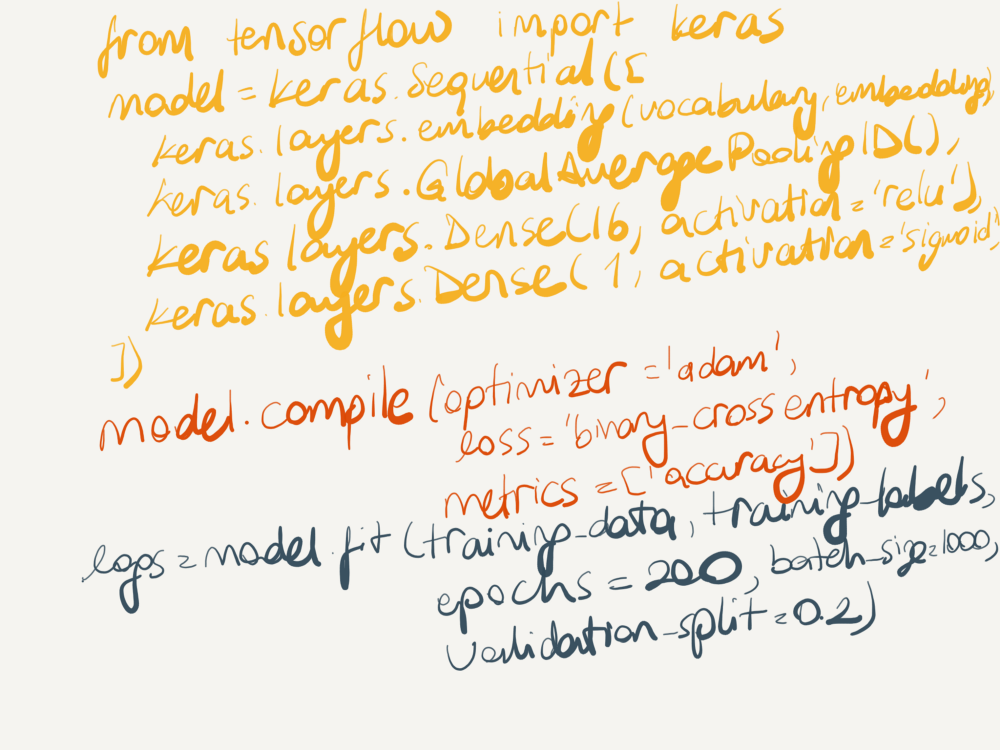 from tensorflow import keras
model = keras.Sequential([
keras.layers.embedding(vocabulary, embedding),
keras.layers.GlobalAveragePooling1D(),
keras layers.Dense(16, activation='relu'),
keras.layers.Dense(1, activation='sigmoid')
])
model.compile(optimizer='adam',
loss='binary_crossentropy',
metrics=['accuracy'])
logs=model.fit(training_data, training_labels,
epochs=200, batch_size=1000,
validation_split=0.2)